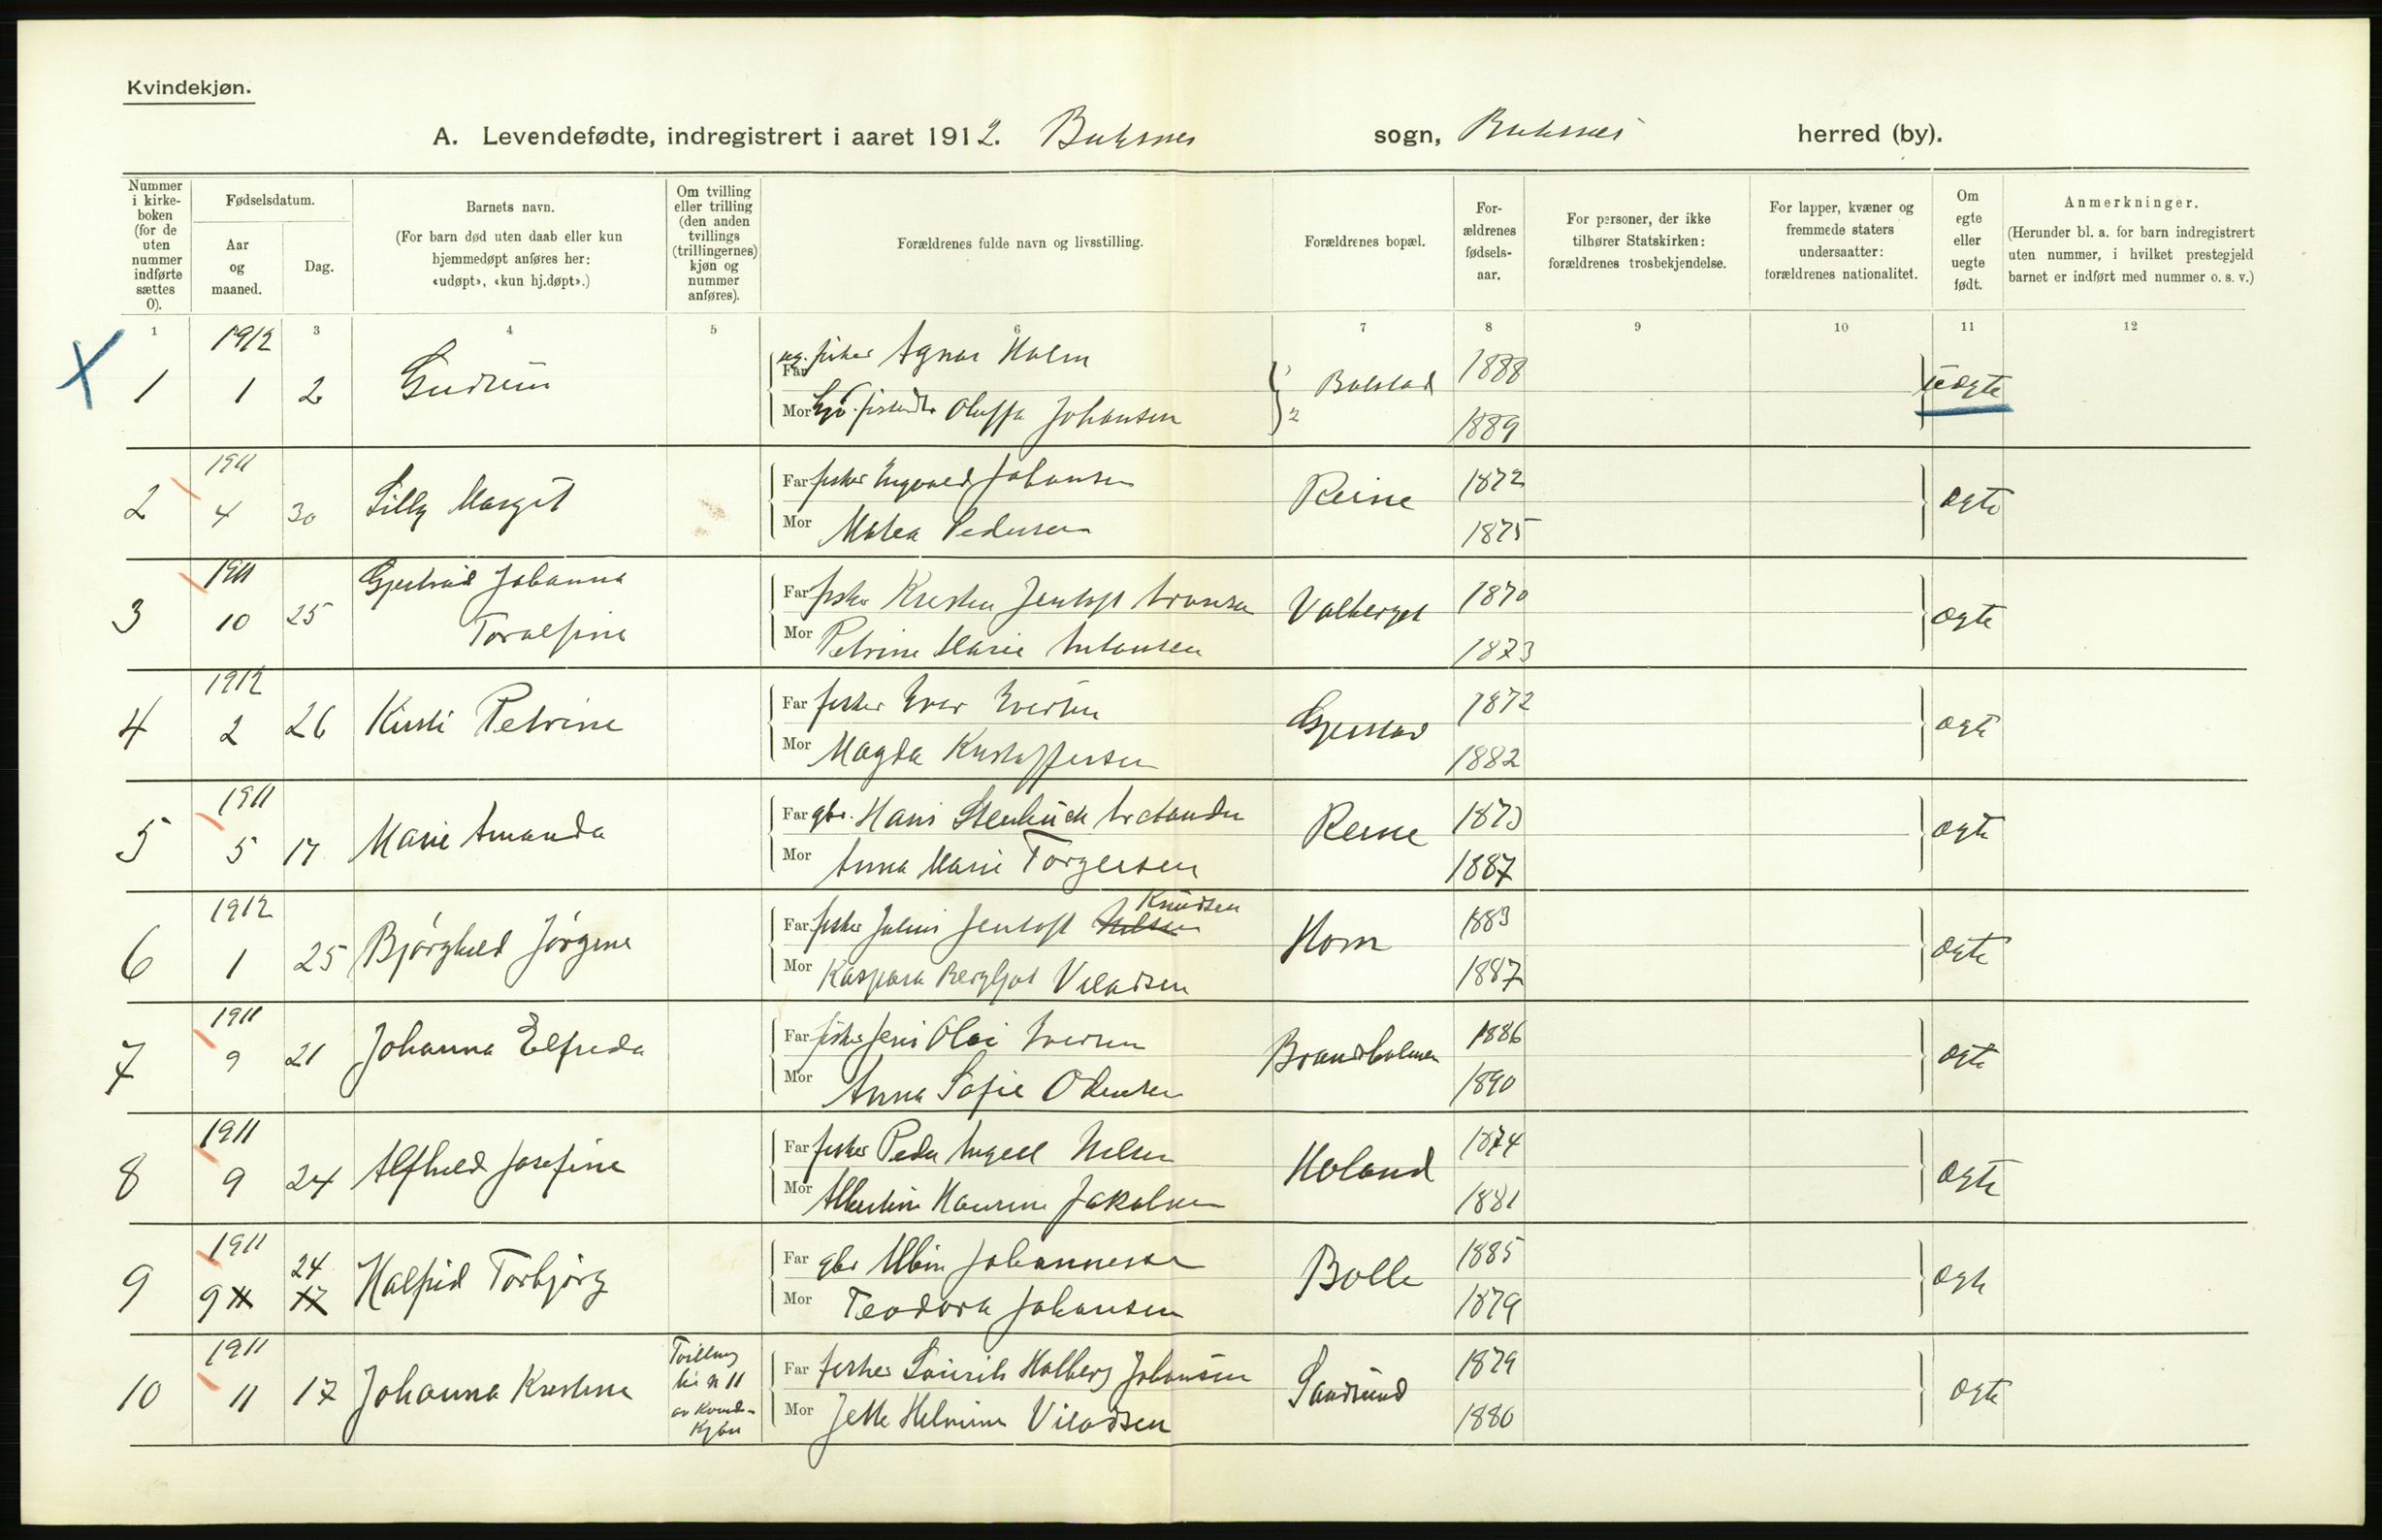 Kvindekjøn.
A. Levendefødte, indregistrert i aaret 1912. Buksnes sogn, Buksnes herred (by).
Nummer i kirke-boken (for de uten nummer indførte sættes 0).
Fødselsdatum.
Aar og maaned.
Dag.
Barnets navn.
(For barn død uten daab eller kun hjemmedøpt anføres her: «udøpt», «kun hj.døpt».)
Om tvilling eller trilling (den anden tvillings (trillingernes) kjøn og nummer anføres).
Forældrenes fulde navn og livsstilling.
Forældrenes bopæl.
For-ældrenes fødsels-aar.
For personer, der ikke tilhører Statskirken: forældrenes trosbekjendelse.
For lapper, kvæner og fremmede staters undersaatter: forældrenes nationalitet.
Om egte eller uegte født.
Anmerkninger.
(Herunder bl. a. for barn indregistrert uten nummer, i hvilket prestegjeld barnet er indført med nummer o. s. v.)
1 3 4 5 6 7 8 9 10 11 12
X 1912
1 1 2 Gudrun
Far ug. fisker Agnar Holm 1888
Mor Oluffa Johansen 1889
Balstad uegte
1911
2 4 30 Lilly Margit
Far fisker Ingvald Johansen 1872
Mor Matea Pedersen 1875
Reine egte
1911
3 10 25 Gjertrud Johanna
Toralfine
Far fisker Kristen Jentoft Aronsen 1870
Mor Petrine Marie Antonsen 1873
Valberget egte
1912
4 2 26 Kirsti Petrine
Far fisker Iver Iversen 1872
Mor Magda Kristoffersen 1882
Gjerstad egte
1911
5 5 17 Marie Amanda
Far gbr. Hans 1873
Mor Anna Marie Torgersen 1887
Reine egte
1912 Knudsen
6 1 25 Bjørghild Jørgine
Far fisker Julius Jentoft Nilsen 1883
Mor Kaspara Bergljot Viladsen 1887
Horn egte
1911
7 9 21 Johanna Elfrida
Far fisker Jens Olai Iversen 1886
Mor Anna Sofie Odensen 1890
Brandholmen egte
1911
8 9 24 Alfhild Josefine
Far fisker Peder Angell Nilsen 1874
Mor Albertine Haurine Jakobsen 1881
Holand egte
1911
24
9 9 11 17 Halfrid Torbjørg
Far gbr Albin Johannesen 1885
Mor Teodora Johansen 1879
Bolle egte
1911
10 11 17 Johanna Kristine
Tvilling
til n 11
av Kvinde-
Kjøn
Far fisker Laurits Halberg Johansen 1879
Mor Jette Helmine Viladsen 1880
Sandsund egte